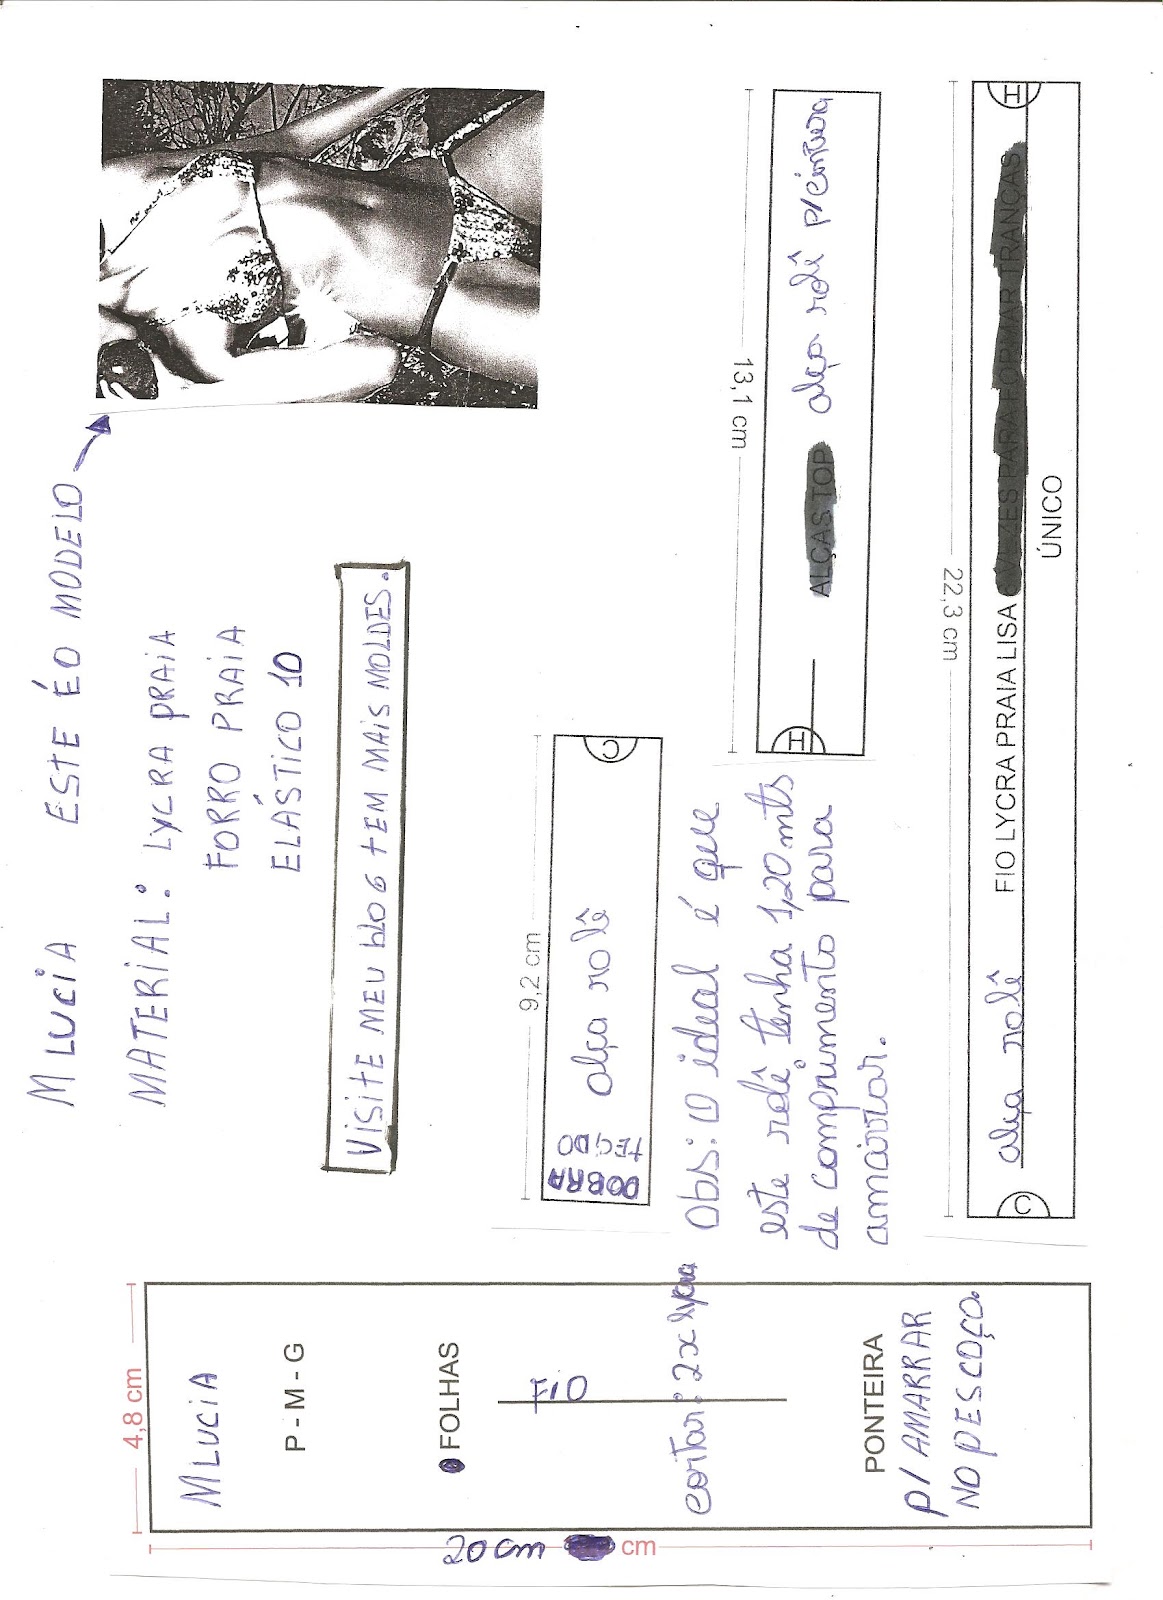 MLUCIA ESTE É O MODELO
MATERIAL: LYCRA PRAIA
FORRO PRAIA
ELÁSTICO 10
VISITE MEU blOG TEM MAIS MOLDES.
9,2 cm
DOBRA
TECIDO
alça rolê
C
Obs: O ideal é que
este rolê tenha 1,20 mts
de comprimento para
amarrar.
13,1 cm
H
ALÇAS TOP alça rolê p/ cintura
22,3 cm
C
alça rolê FIO LYCRA PRAIA LISA VEZES PARA FORMAR TRANÇAS
H
ÚNICO
4,8 cm
MLUCIA
P - M - G
FOLHAS
FIO
cortar: 2x lycra
PONTEIRA
P/ AMARRAR
NO PESCOÇO.
20 cm cm